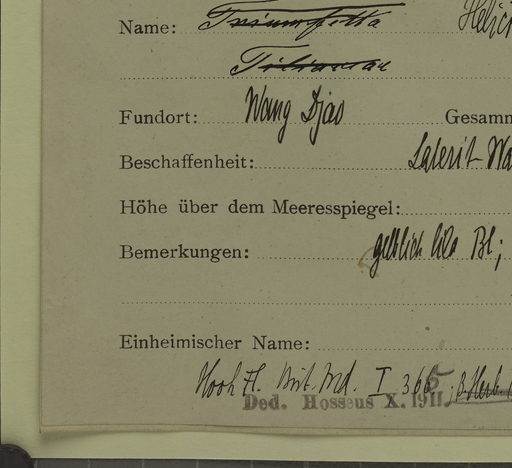 Name: Triumfetta Helict
Tiliaceae
Fundort: Wang Djao Gesamm
Beschaffenheit: Laterit-Wa
Höhe über dem Meeresspiegel:
Bemerkungen: gelblich lila Bl;
Einheimischer Name:
Hook Fl. Brit. Ind. I 365; B. Herb
Ded. Hosseus X. 1911.